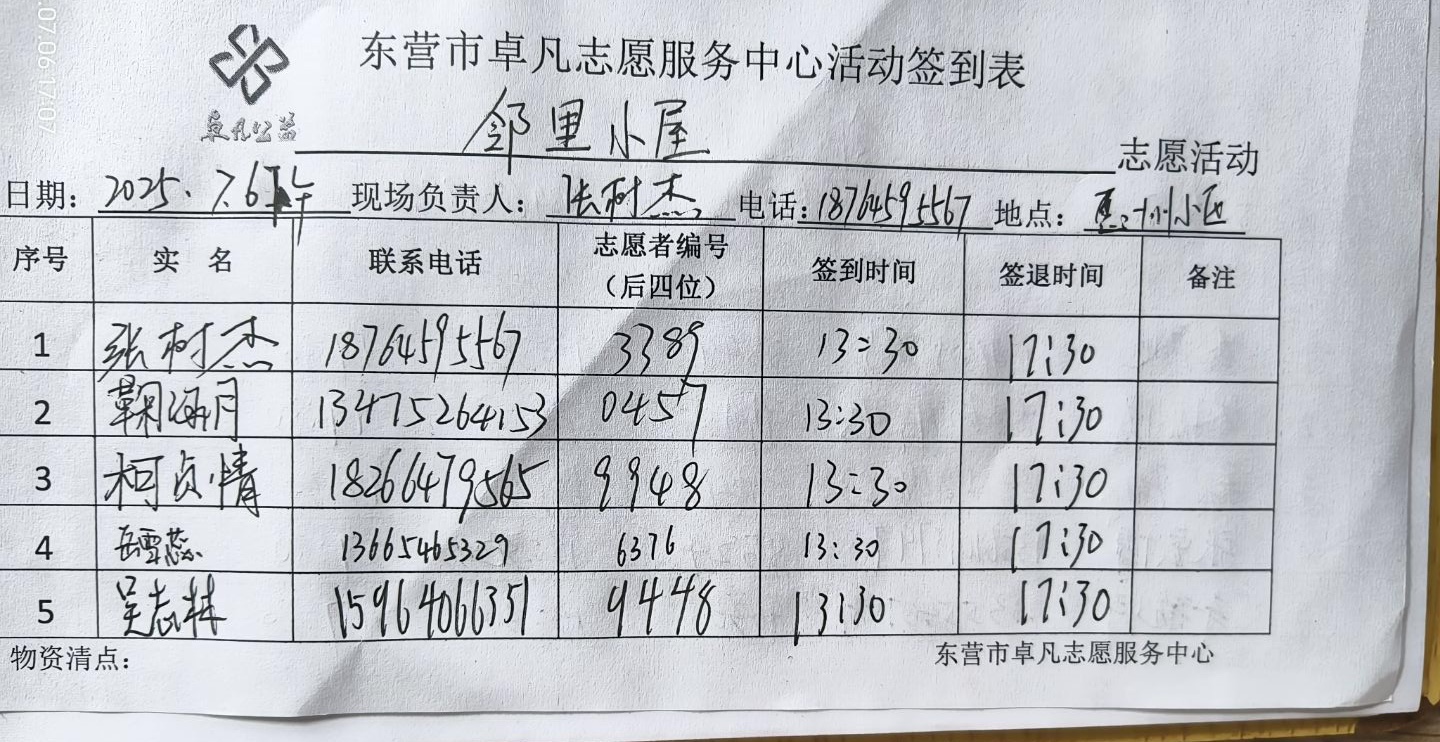 07.06 17:07
东营市卓凡志愿服务中心活动签到表
卓凡公益
邻里小屋 志愿活动
日期：2025.7.6下午 现场负责人：张树杰 电话：18764595567 地点：惠州小区
序号 实 名 联系电话 志愿者编号（后四位） 签到时间 签退时间 备注
1 张树杰 18764595567 3389 13:30 17:30
2 鞠海月 13475264153 0457 13:30 17:30
3 柯贞情 18266479565 9948 13:30 17:30
4 岳雪蕊 13665465329 6376 13:30 17:30
5 吴志林 15964066351 9448 13:30 17:30
物资清点： 东营市卓凡志愿服务中心